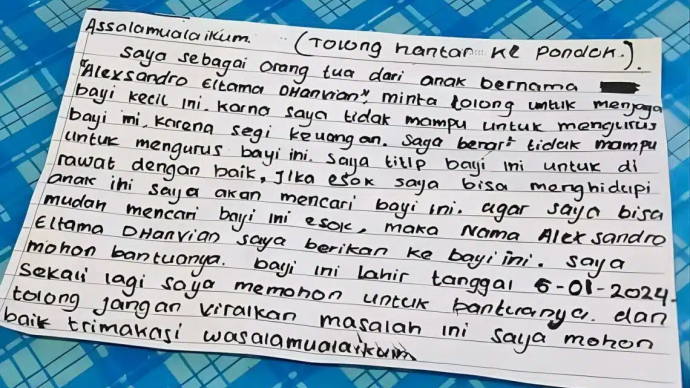 Assalamualaikum. (Tolong hantar ke pondok.).
Saya sebagai orang tua dari anak bernama
"Alexsandro Eltama DHanvian", minta tolong untuk menjaga
bayi kecil ini. karna saya tidak mampu untuk mengurus
bayi ini, karena segi keuangan. Saya benar² tidak mampu
untuk mengurus bayi ini. saya titip bayi ini untuk di
rawat dengan baik, Jika esok saya bisa menghidupi
anak ini saya akan mencari bayi ini. agar saya bisa
mudah mencari bayi ini esok, maka Nama Alex sandro
Eltama DHanvian saya berikan ke bayi ini. saya
mohon bantuanya. bayi ini lahir tanggal 6-01-2024.
Sekali lagi saya memohon untuk banturanya. dan
tolong jangan viralkan masalah ini saya mohon
baik trimakasi wasalamualaikum